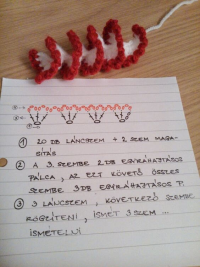 ① 20 DB LÁNCSZEM + 2 SZEM MAGA-
SÍTÁS
② A 3. SZEMBE 2DB EGYRÁHAJTÁSOS
PÁLCA, AZ EZT KÖVETŐ ÖSSZES
SZEMBE 3DB EGYRÁHAJTÁSOS P.
③ 3 LÁNCSZEM, KÖVETKEZŐ SZEMBE
RÖGZÍTENI, ISMÉT 3 SZEM ...
ISMÉTELNI